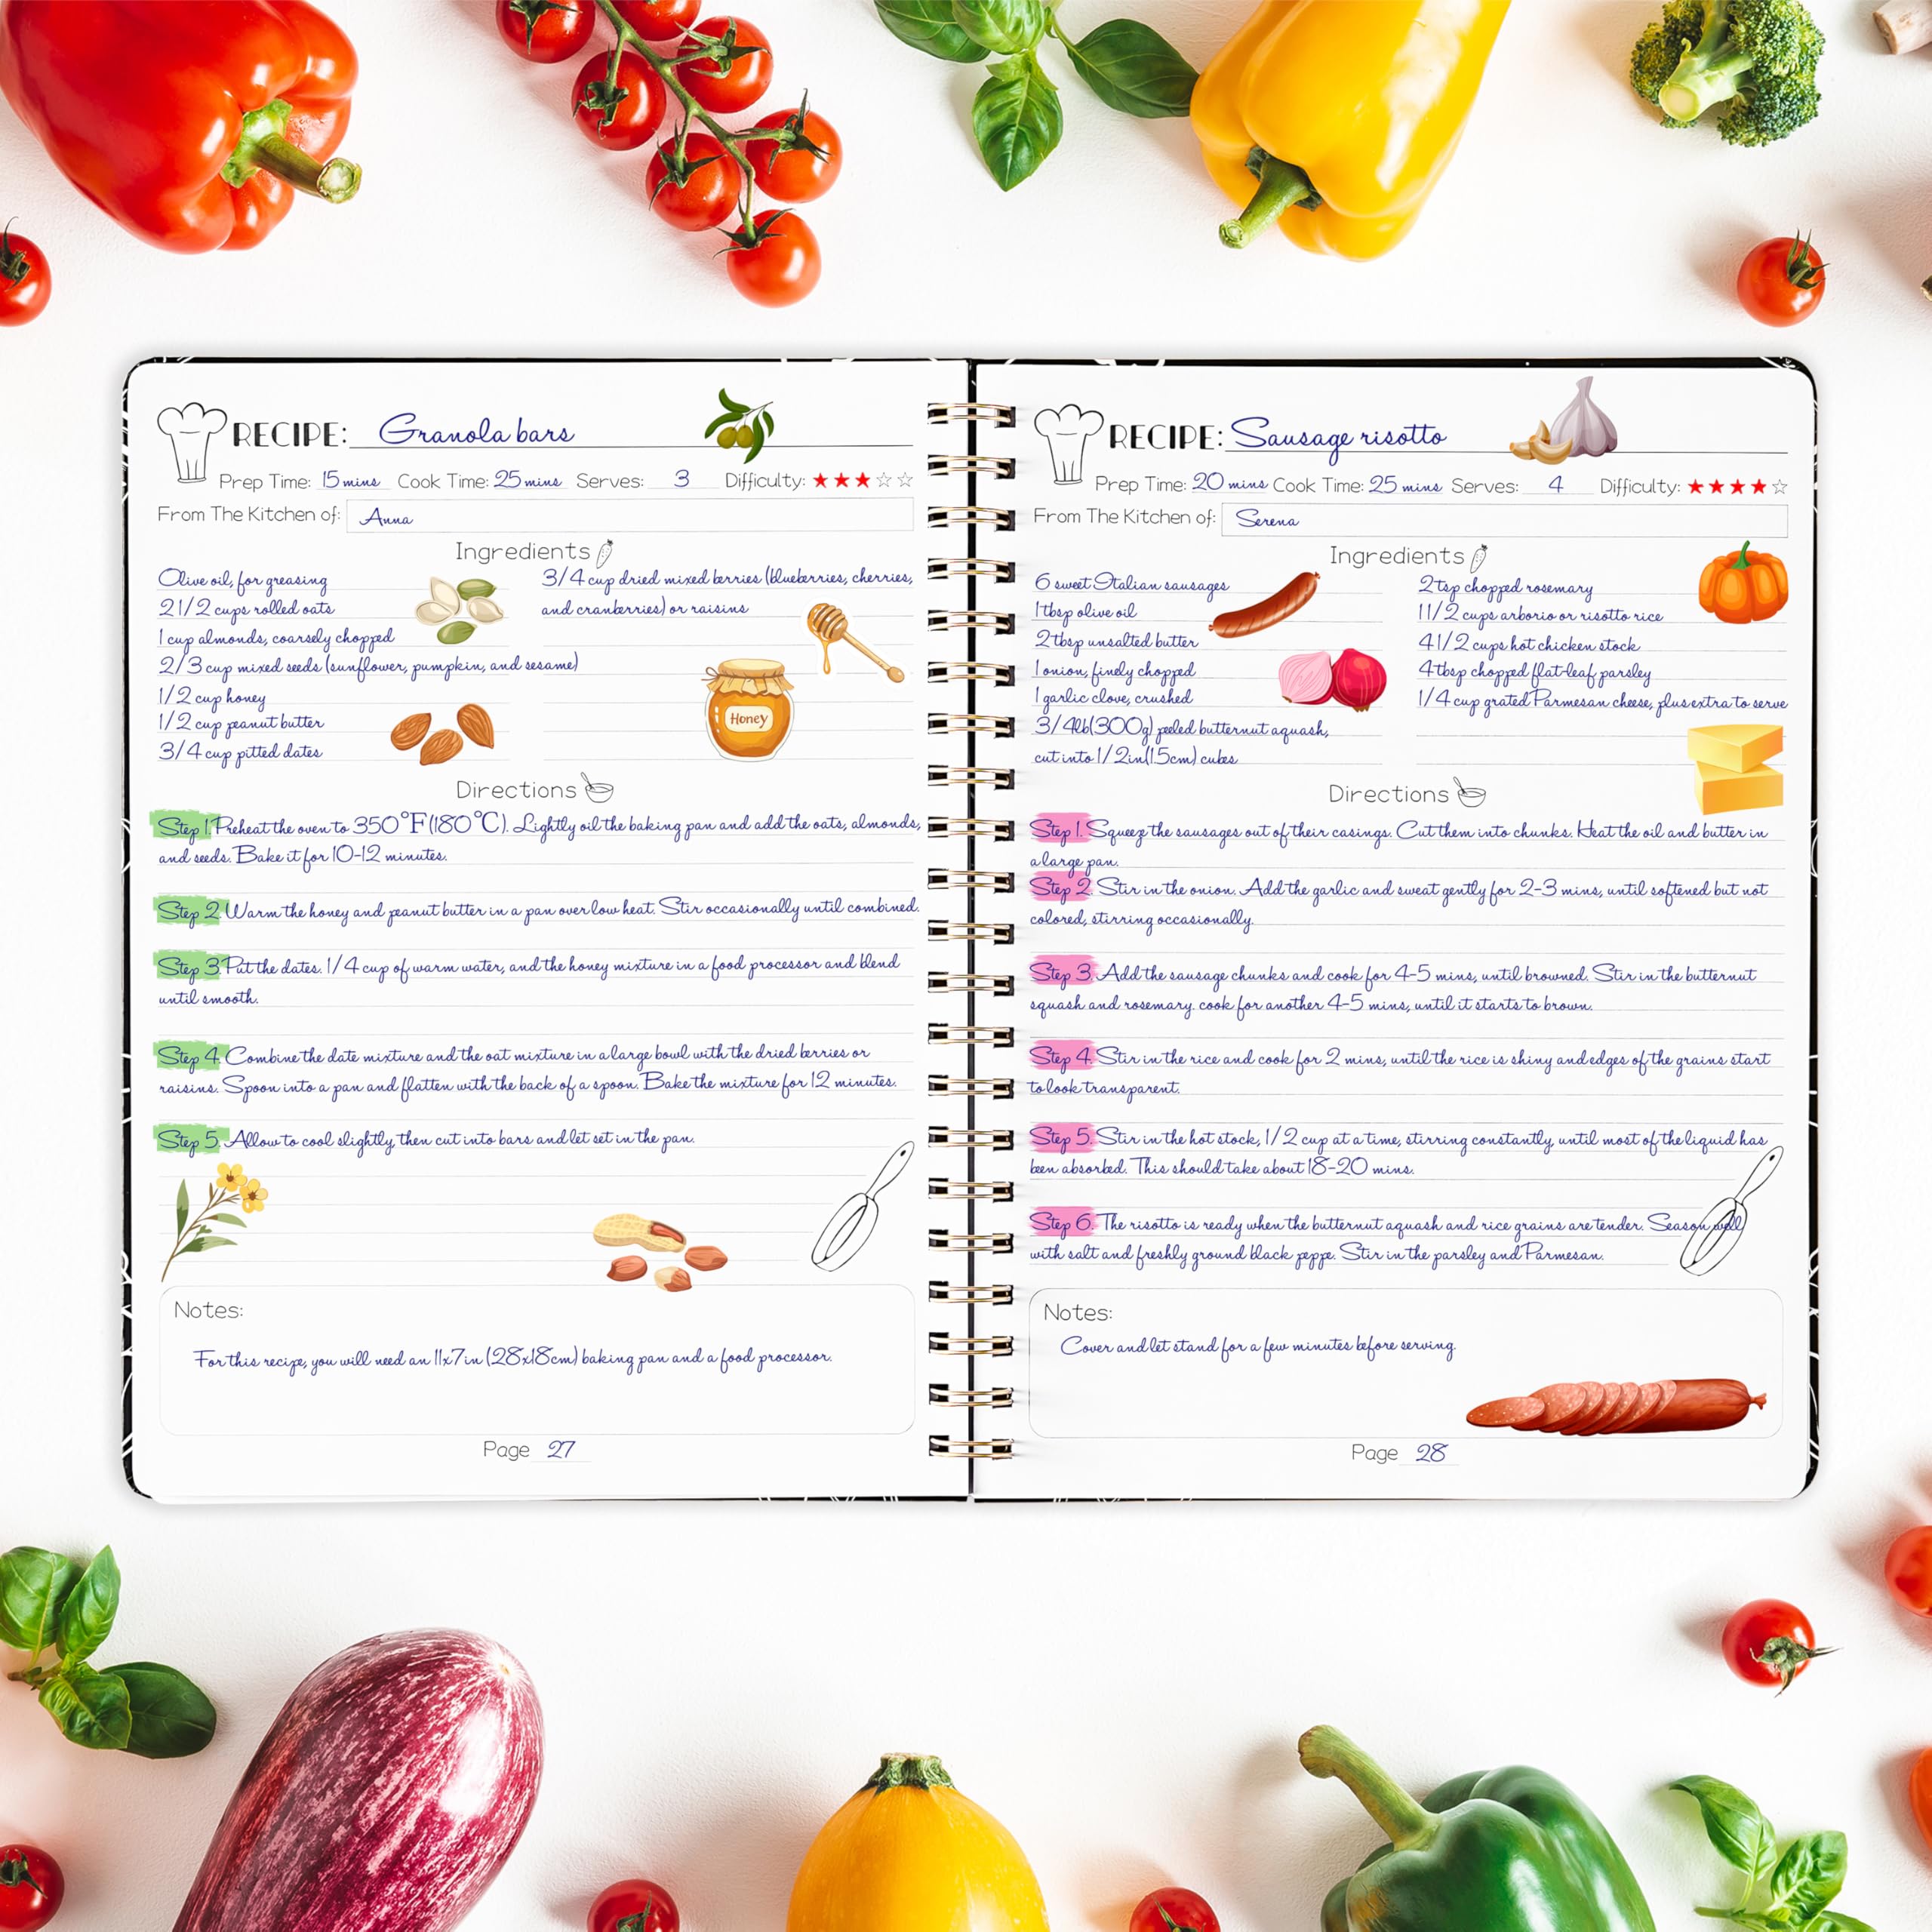 RECIPE: Granola bars
Prep Time: 15 mins Cook Time: 25 mins Serves: 3 Difficulty: ★★★☆☆
From The Kitchen of: Anna
Ingredients
Olive oil, for greasing
2 1/2 cups rolled oats
1 cup almonds, coarsely chopped
2/3 cup mixed seeds (sunflower, pumpkin, and sesame)
1/2 cup honey
1/2 cup peanut butter
3/4 cup pitted dates
3/4 cup dried mixed berries (blueberries, cherries,
and cranberries) or raisins
Honey
Directions
Step 1. Preheat the oven to 350°F (180°C). Lightly oil the baking pan and add the oats, almonds,
and seeds. Bake it for 10-12 minutes.
Step 2. Warm the honey and peanut butter in a pan over low heat. Stir occasionally until combined.
Step 3. Put the dates. 1/4 cup of warm water, and the honey mixture in a food processor and blend
until smooth.
Step 4. Combine the date mixture and the oat mixture in a large bowl with the dried berries or
raisins. Spoon into a pan and flatten with the back of a spoon. Bake the mixture for 12 minutes.
Step 5. Allow to cool slightly, then cut into bars and let set in the pan.
Notes:
For this recipe, you will need an 11x7in (28x18cm) baking pan and a food processor.
Page 27
RECIPE: Sausage risotto
Prep Time: 20 mins Cook Time: 25 mins Serves: 4 Difficulty: ★★★★☆
From The Kitchen of: Serena
Ingredients
6 sweet Italian sausages
1 tbsp olive oil
2 tbsp unsalted butter
1 onion, finely chopped
1 garlic clove, crushed
3/4lb(300g) peeled butternut aquash,
cut into 1/2in(1.5cm) cubes
2 tsp chopped rosemary
1 1/2 cups arborio or risotto rice
4 1/2 cups hot chicken stock
4 tbsp chopped flat-leaf parsley
1/4 cup grated Parmesan cheese, plus extra to serve
Directions
Step 1. Squeez the sausages out of their casings. Cut them into chunks. Heat the oil and butter in
a large pan.
Step 2. Stir in the onion. Add the garlic and sweat gently for 2-3 mins, until softened but not
colored, stirring occasionally.
Step 3. Add the sausage chunks and cook for 4-5 mins, until browned. Stir in the butternut
squash and rosemary. cook for another 4-5 mins, until it starts to brown.
Step 4. Stir in the rice and cook for 2 mins, until the rice is shiny and edges of the grains start
to look transparent.
Step 5. Stir in the hot stock, 1/2 cup at a time, stirring constantly, until most of the liquid has
been absorbed. This should take about 18-20 mins.
Step 6. The risotto is ready when the butternut aquash and rice grains are tender. Season well
with salt and freshly ground black peppe. Stir in the parsley and Parmesan.
Notes:
Cover and let stand for a few minutes before serving.
Page 28